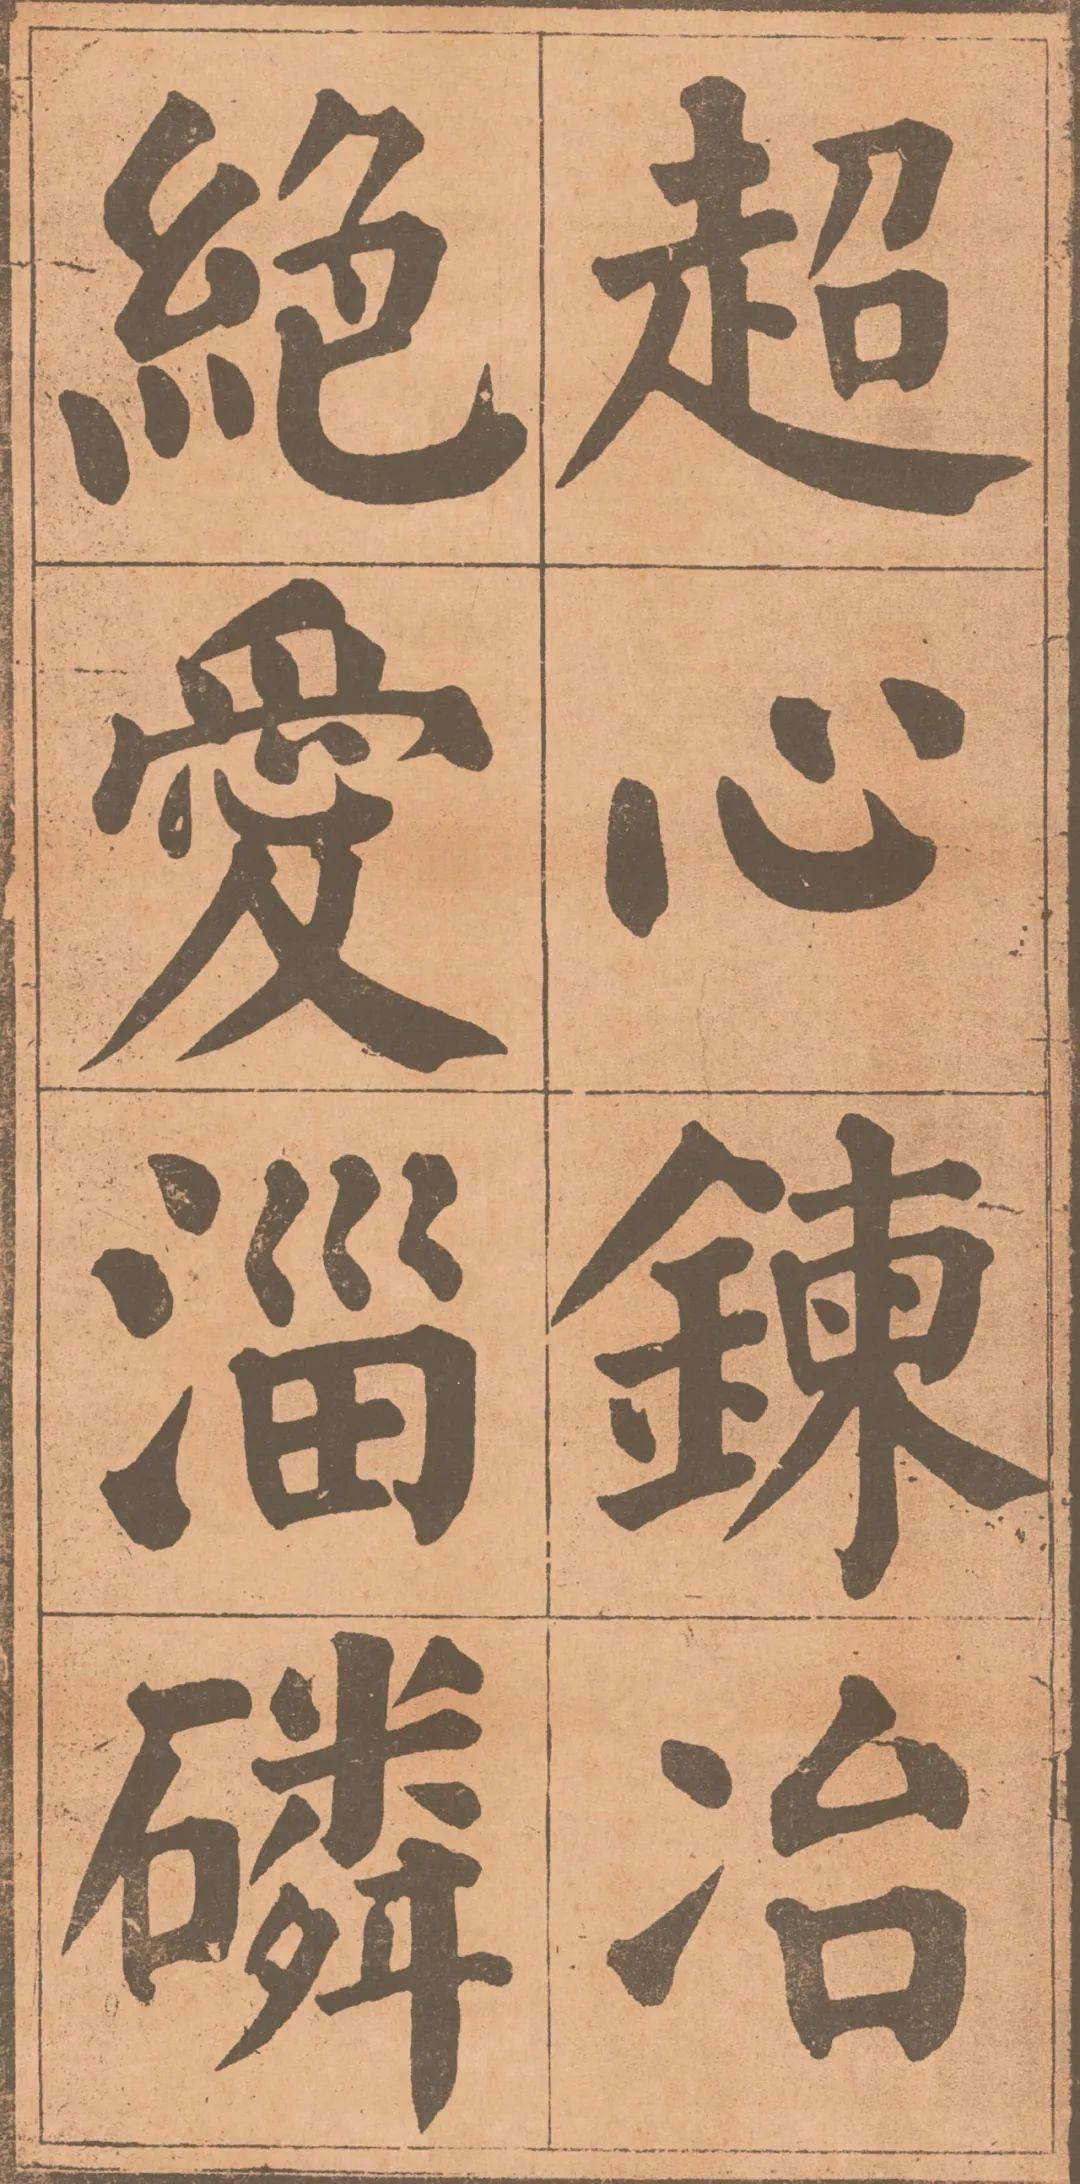 超心鍊冶
絕愛淄磷